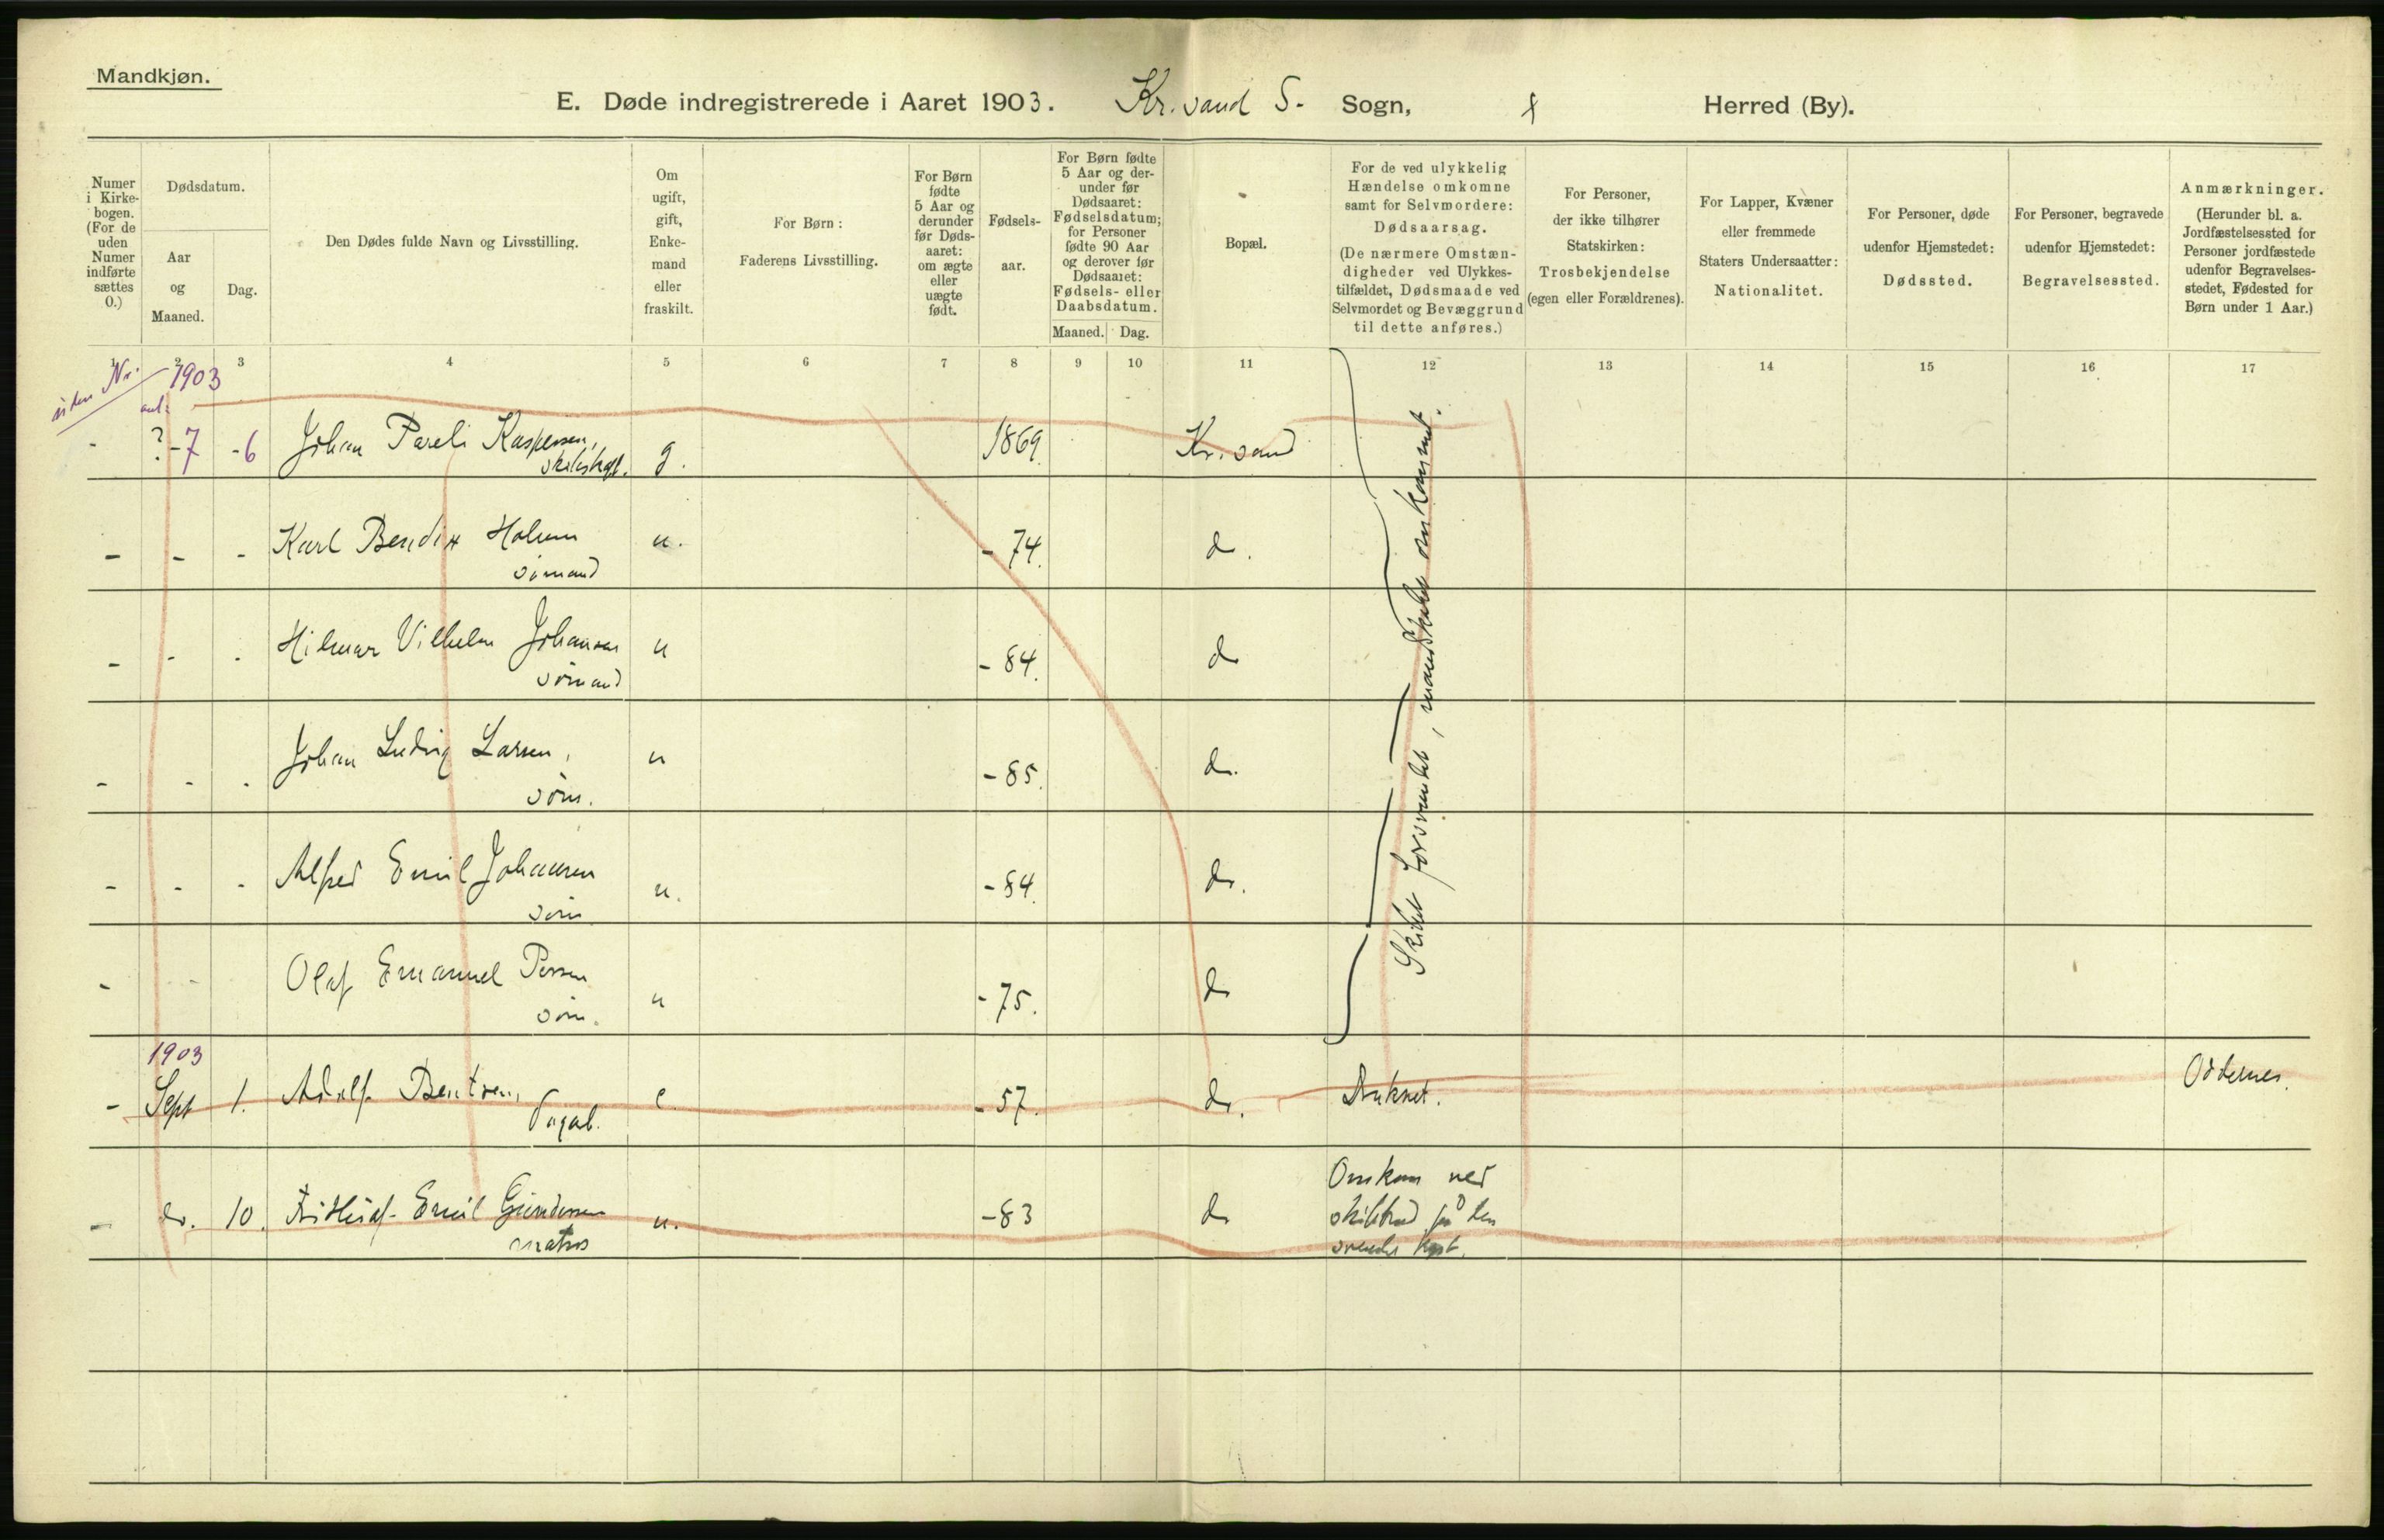 Mandkjøn.
E. Døde indregistrerede i Aaret 1903. Kr.sand S. Sogn, Herred (By).
Numer
i Kirke-
bogen.
(For de
uden
Numer
indførte
sættes
0.)
Dødsdatum.
Aar
og
Maaned.
Dag.
Den Dødes fulde Navn og Livsstilling.
Om
ugift,
gift,
Enke-
mand
eller
fraskilt.
For Børn:
Faderens Livsstilling.
For Børn
fødte
5 Aar og
derunder
før Døds-
aaret:
om ægte
eller
uægte
født.
Fødsels-
aar.
For Børn fødte
5 Aar og der-
under før
Dødsaaret:
Fødselsdatum;
for Personer
fødte 90 Aar
og derover før
Dødsaaret:
Fødsels- eller
Daabsdatum.
Maaned. Dag.
Bopæl.
For de ved ulykkelig
Hændelse omkomne
samt for Selvmordere:
Dødsaarsag.
(De nærmere Omstæn-
digheder ved Ulykkes-
tilfældet, Dødsmaade ved
Selvmordet og Bevæggrund
til dette anføres.)
For Personer,
der ikke tilhører
Statskirken:
Trosbekjendelse
(egen eller Forældrenes).
For Lapper, Kvæner
eller fremmede
Staters Undersaatter:
Nationalitet.
For Personer, døde
udenfor Hjemstedet:
Dødssted.
For Personer, begravede
udenfor Hjemstedet:
Begravelsessted.
Anmærkninger.
(Herunder bl. a.
Jordfæstelsessted for
Personer jordfæstede
udenfor Begravelses-
stedet, Fødested for
Børn under 1 Aar.)
1 2 3 4 5 6 7 8 9 10 11 12 13 14 15 16 17
uden Nr. 1903
- ? -7 -6 Johan Pareli Kaspersen, g. 1869. Kr.sand
- - - Karl Bendix Holum u. - 74. do.
sømand
- - - Hilmar Vilhelm Johansen u - 84. do
sømand
- - - Johan Ludvig Larsen, u - 85. do.
søm.
- - - Alfred Emil Johansen u. - 84. do.
søm
- - - Olaf Emanuel Persen u - 75. do
søm.
Skibet forsvundet, mandskabet omkommet.
1903
- Sept 1. Adolf Bentsen, e. - 57. do. Druknet. Oddernes.
- do. 10. Fridthjof Emil Gundersen u. - 83 do Omkom ved
matros skibbrud på den
svenske kyst.